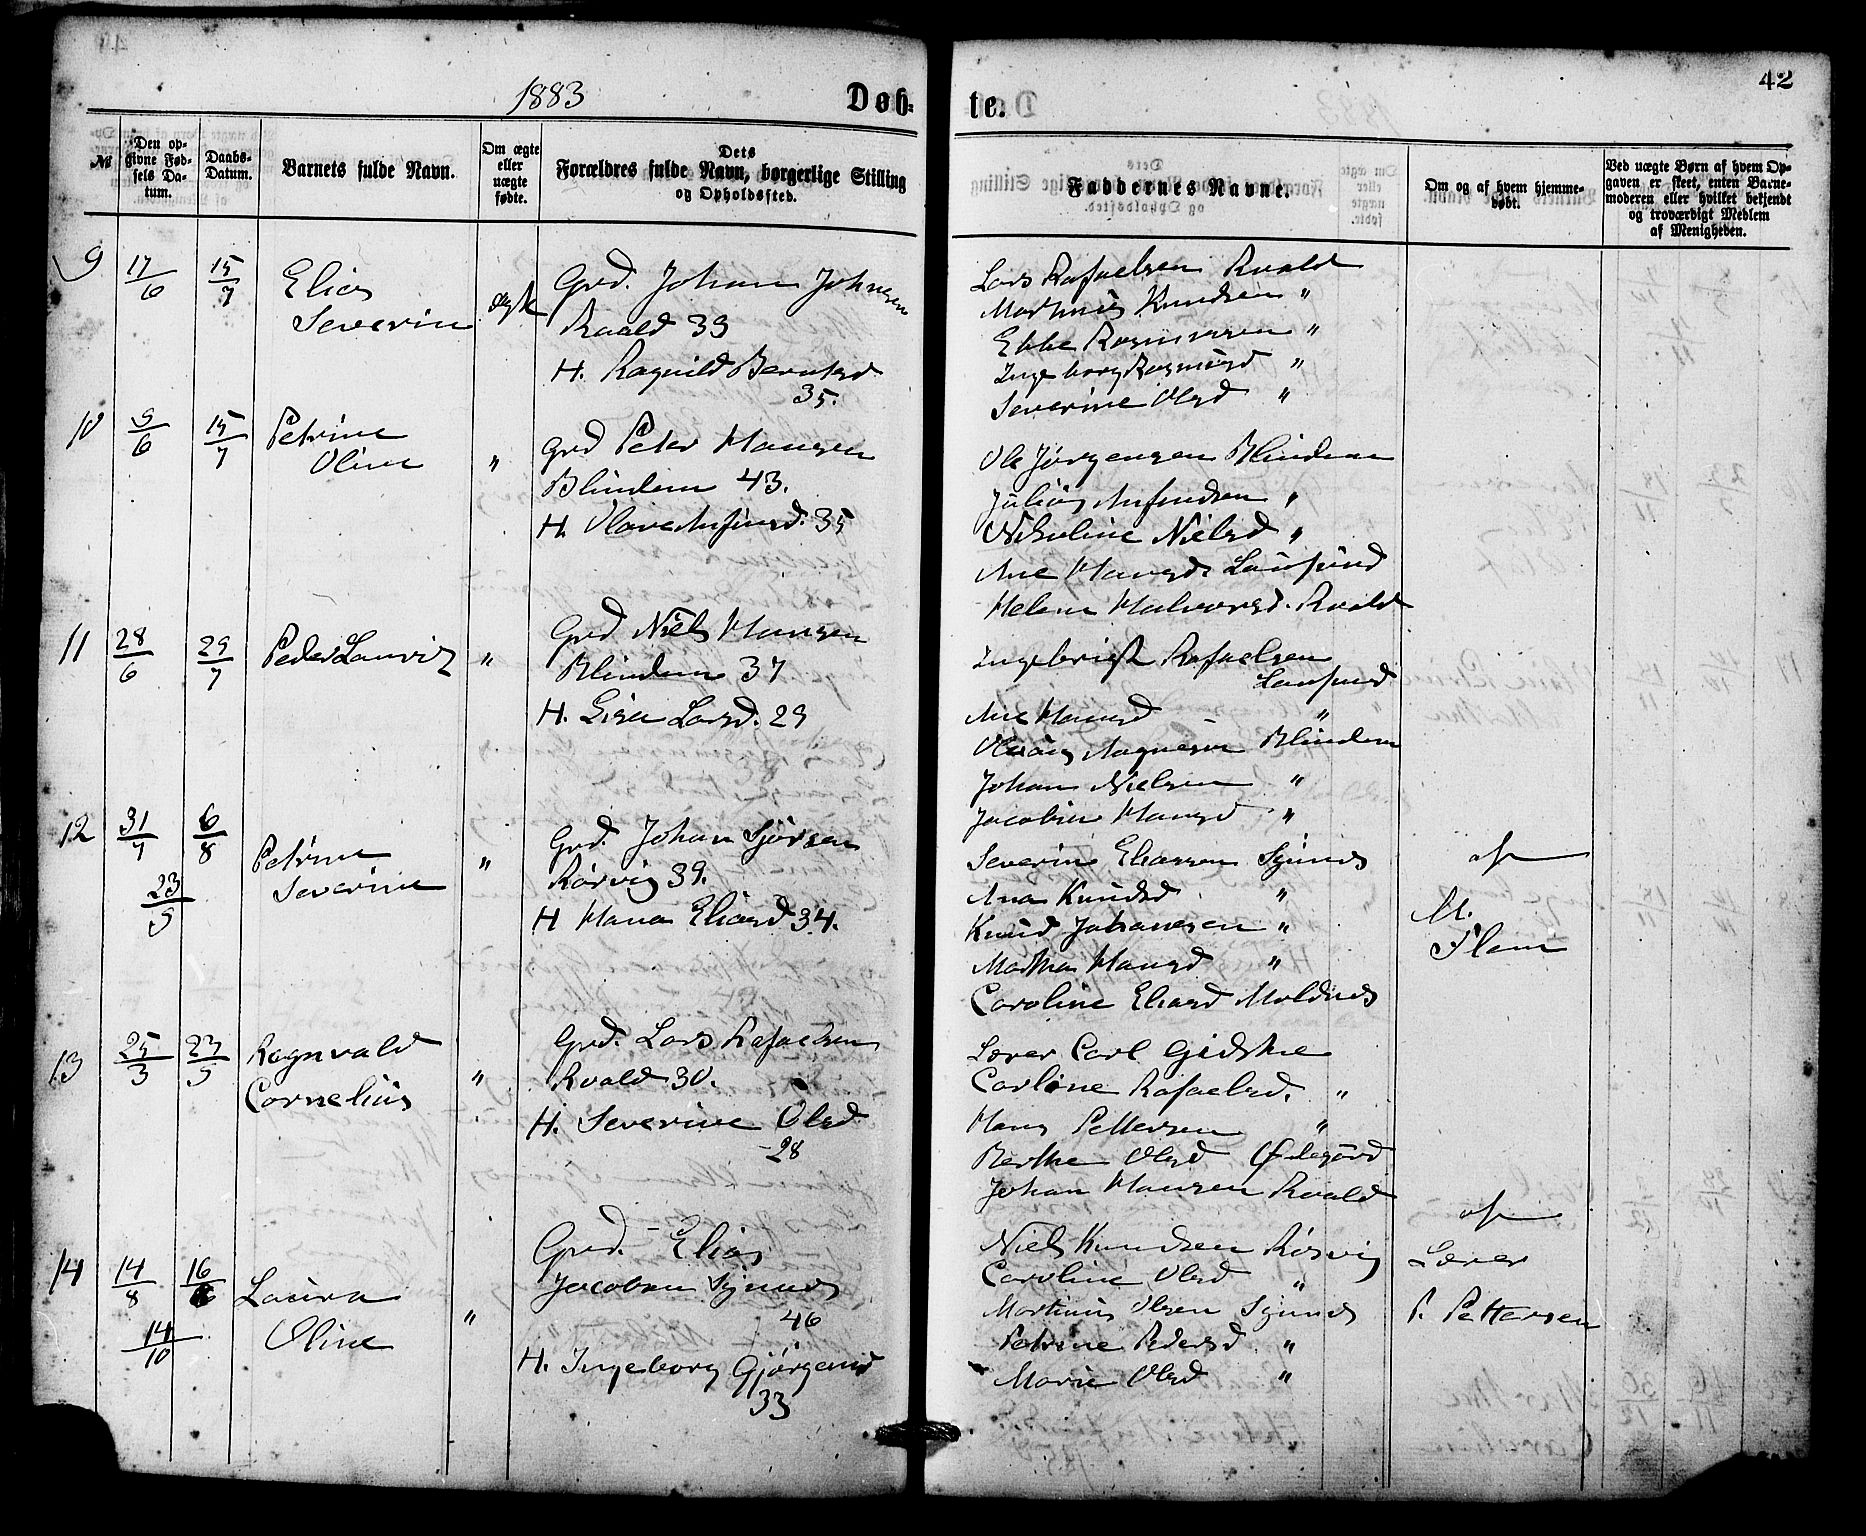 1883
Døb-
te.
42
№
Den op-
givne Fød-
sels Da-
tum.
Daabs-
Datum.
Barnets fulde Navn.
Om ægte
eller
uægte
fødte.
Dets
Forældres fulde Navn, borgerlige Stilling
og Opholdssted.
Faddernes Navne.
Om og af hvem hjemme-
døbt.
Ved uægte Børn af hvem Op-
gaven er skeet, enten Barne-
moderen eller hvilket bekjendt
og troværdigt Medlem
af Menigheden.
9
17/6
15/7
Elias
Severin
ægte
Grd. Johan Johnsen
Roald 39
H. Ragnild Berntsd
35.
Lars Rafaelsen Roald
Martinus Knudsen "
Ebbe Rasmussen "
Ingeborg Rasmusd "
Severine Olsd "
10
9/6
15/7
Petrine
Oline
"
Grd Peter Hansen
Blindem 43.
H. Olave Anfinsd. 35
Ole Jørgensen Blindem
Julius Anfindsen "
Nikoline Nielsd "
Ane Hansd. Lausund
Helene Halvorsd. Roald
11
28/6
29/7
Peder Lauritz
"
Grd Niels Hansen
Blindem 37
H. Gisen Larsd. 29
Ingebrigt Rafaelsen
Lausund
Ane Hansd "
Olaus Aagnesen Blindem
Johan Nielsen "
Jacobine Hansd "
12
31/7
6/8
23/9
Petrine
Severine
"
Grd. Johan Sjørsen
Rørvig 39.
H Hana Eliasd 34.
Severin Eliassen Synnes
Ana Knudsd "
Knud Johansen "
Martha Hansd "
Caroline Eliasd Moldnes
af
M.
Flem
13
25/3
23/9
Ragnvald
Cornelius
"
Grd. Lars Rafaelsen
Roald 30.
H. Severine Olsd
28
Lærer Carl Gidske
Carline Rafaelsd. "
Hans Pettersen "
Berthe Olsd Ødegård
Johan Hansen Roald
14
14/8
16/6
14/10
Laura
Oline
"
Grd. Elias
Jacobsen Synnes
46
H. Ingeborg Gjørgensd
33
Niels Knudsen Rørvig
Caroline Olsd "
Martinus Olsen Synnes
Petrine Pedersd "
Marie Olsd "
af
Lærer
P. Pettersen